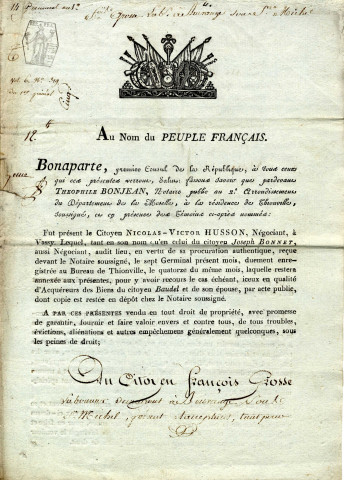 Au Nom du PEUPLE FRANÇAIS.
Bonaparte, premier Consul de la République, à tous ceux
qui ces présentes verront, Salut; faisons savoir que pardevant
THEOPHILE BONJEAN, Notaire public au 2.e Arrondissement
du Département de la Moselle, à la résidence de Thionville,
soussigné, en présence des Témoins ci-après nommés;
Fut présent le Citoyen NICOLAS-VICTOR HUSSON, Négociant, à
Vassy. Lequel, tant en son nom qu'en celui du citoyen Joseph BONNET,
aussi Négociant, audit lieu, en vertu de sa procuration authentique, reçue
devant le Notaire soussigné, le sept Germinal présent mois, duement enre-
gistrée au Bureau de Thionville, le quatorze du même mois, laquelle restera
annexée aux présentes, pour y avoir recours le cas échéant, iceux en qualité
d'Acquéreurs des Biens du citoyen Baudel et de son épouse, par acte public,
dont copie est restée en dépôt chez le Notaire soussigné.
A PAR CES PRÉSENTES vendu en tout droit de propriété, avec promesse
de garantir, fournir et faire valoir envers et contre tous, de tous troubles,
évictions, aliénations et autres empêchemens généralement quelconques, sous
les peines de droit;
Au Citoyen François Grosse